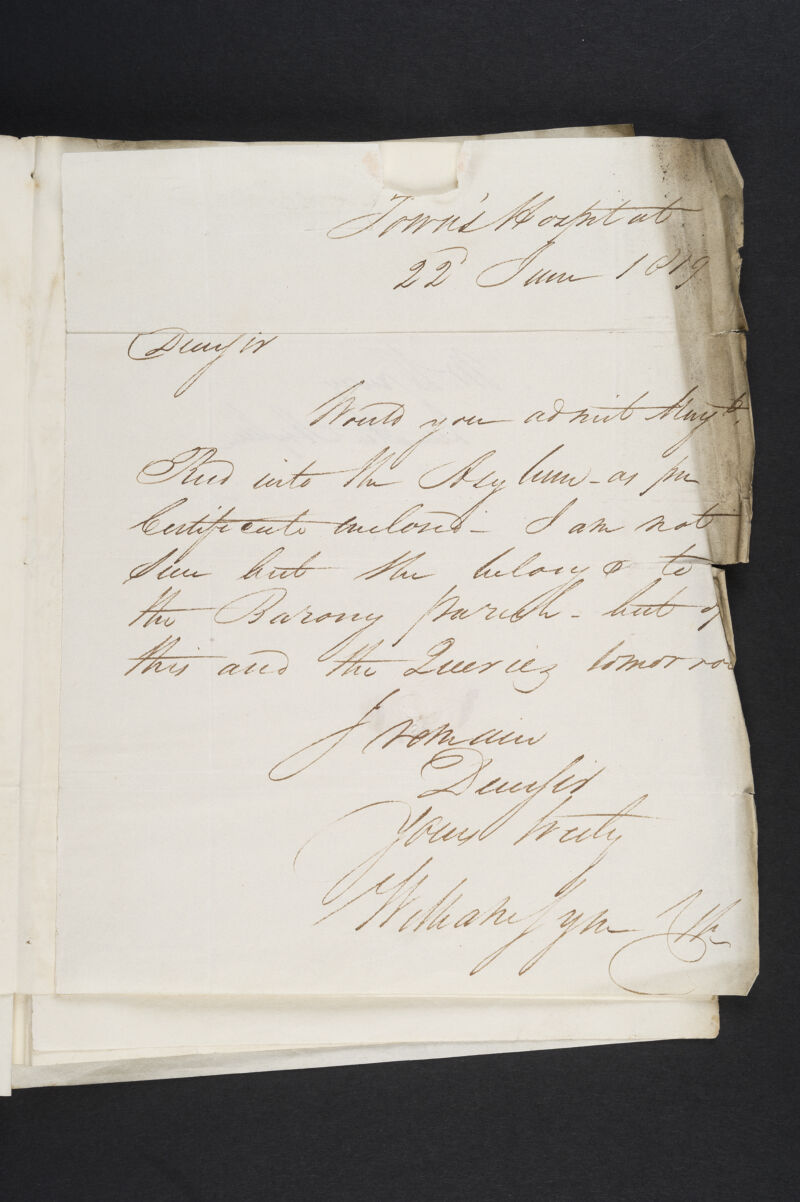 Town's Hospital
22d June 1819
Dear Sir
Would you admit Mary
Reid into the Asylum - as per
Certificate enclosed - I am not
Sure but she belongs to
the Barony parish - but of
this and the Queries tomorrow
I remain
Dear Sir
Yours truly
William Syme